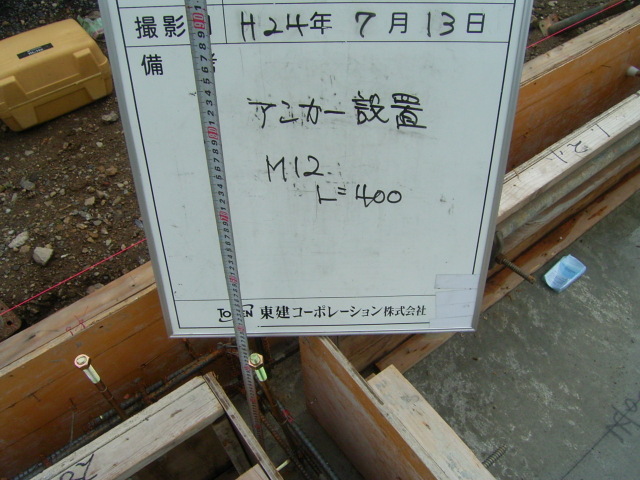 撮影日 H24年 7月13日
備考
アンカー設置
M12
L=400
TOKEN 東建コーポレーション株式会社